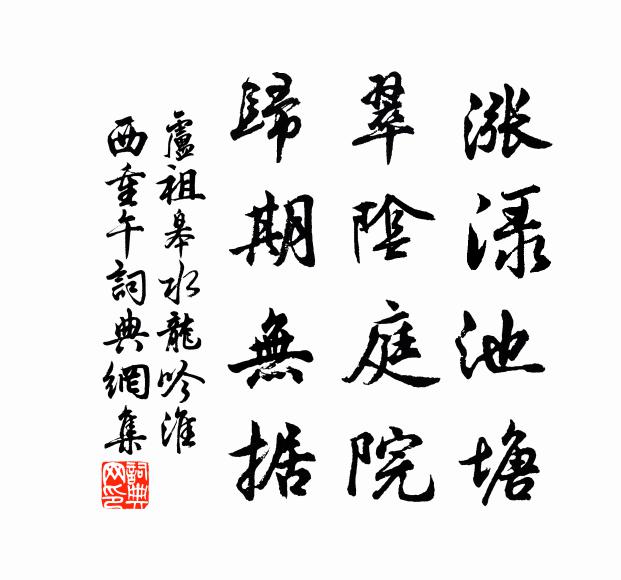 漲渌池塘
翠陰庭院
歸期無据
盧祖皋水龍吟淮
西重午詞典網集
詞典
网印